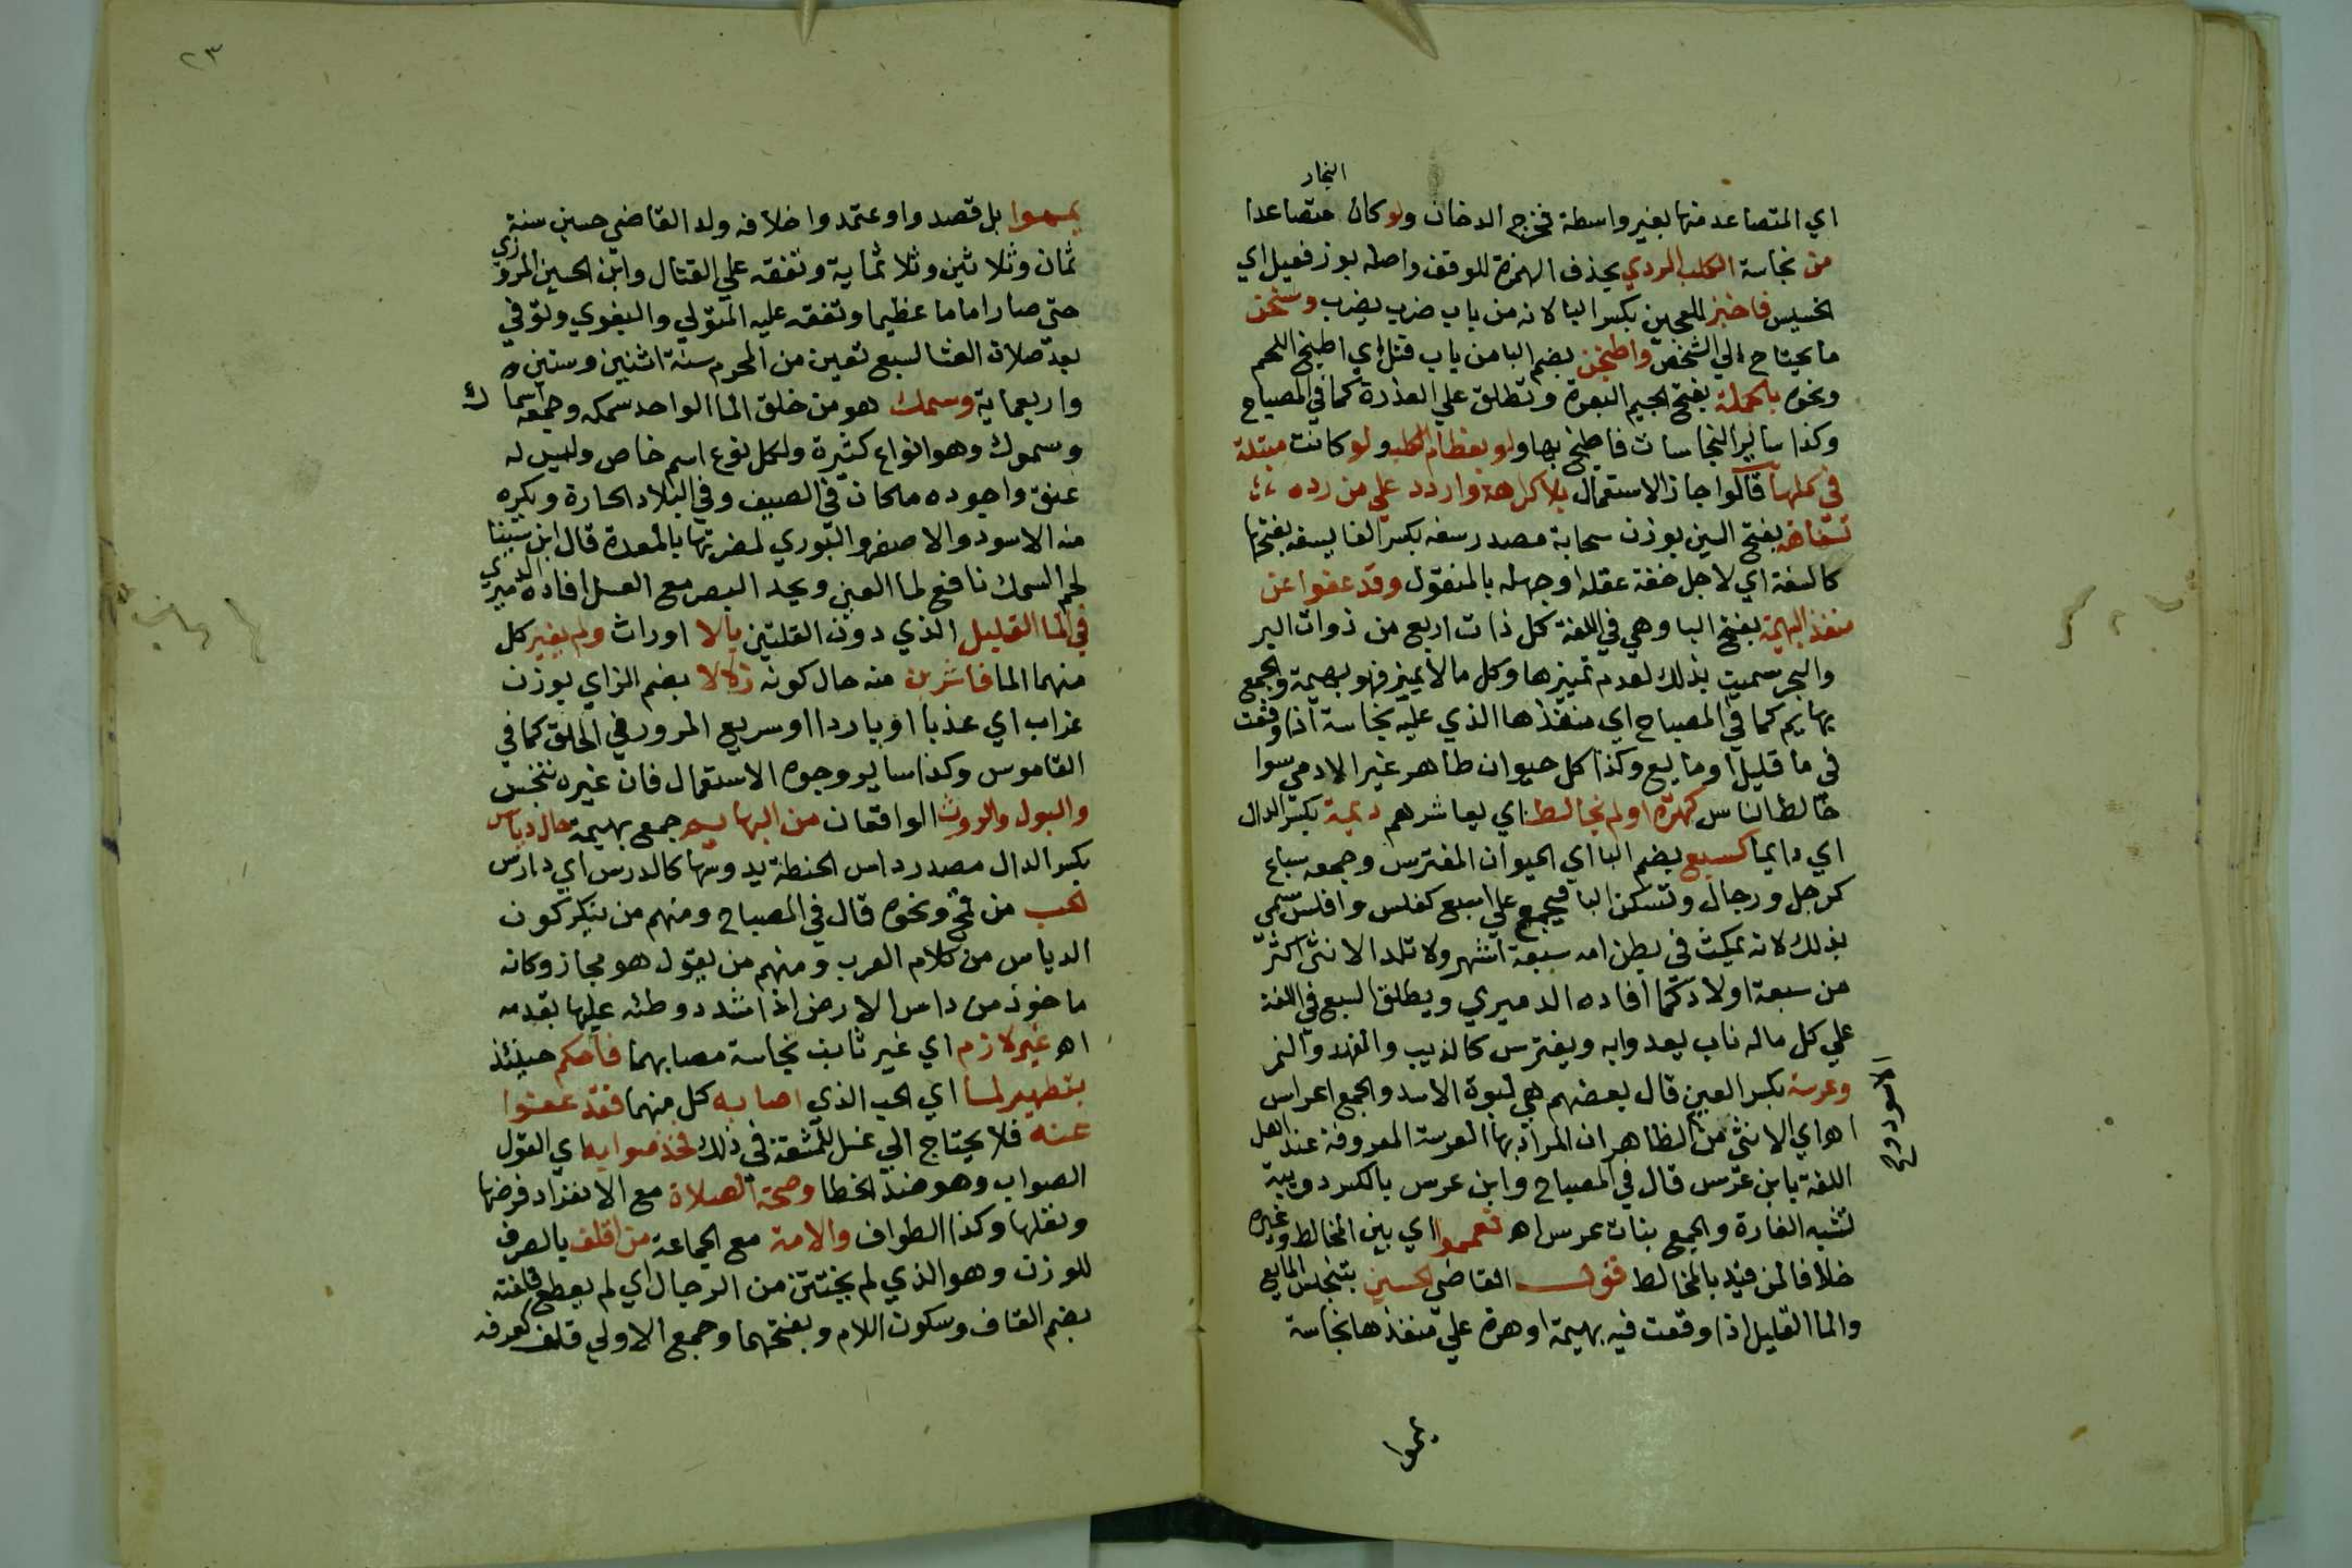 البخار
اي المتصاعد منها بغير واسطة فخرج الدخان ولو كان متصاعدا
من نجاسة الكلب الردي بحذف الهمزة للوقف واصله بوزن فعيل اي
الخسيس فاخبز العجين بكسر البا لانه من باب ضرب يضرب وسخن
ما يحتاج الي الشخص واطبخن بضم البا من باب قتل اي اطبخ اللحم
ونحوه بالجلة بفتح الجيم البعرة وتطلق علي العذرة كما في المصباح
وكذا ساير النجاسات فاطبخ بها ولو بعظام الكلب ولو كانت مبتلة
في كلها قالوا جاز الاستعمال بلا كراهة واردد علي من رده
تسفاهه بفتح السين بوزن سحابة مصدر سفه بكسر الفا يسفه بفتحها
كالسفة اي لاجل خفة عقله او جهله بالمنقول وقد عفوا عن
منفذ البهيمة بفتح البا وهي في اللغة كل ذات اربع من ذوات البر
والبحر سميت بذلك لعدم تمييزها وكل ما لا يميز فهو بهيمة والجمع
بهايم كما في المصباح اي منفذها الذي عليه نجاسة اذا وقعت
في ما قليل او مايع وكذا كل حيوان طاهر غير الادمي سوا
خالط الناس كهرة او لم يخالط اي يعاشرهم ديمة بكسر الدال
اي دايما كسبع بضم البا اي الحيوان المفترس وجمعه سباع
كرجل ورجال وتسكن البا فيجمع علي اسبع كفلس وافلس سمي
بذلك لانه يمكث في بطن امه سبعة اشهر ولا تلد الانثي اكثر
من سبعة اولاد كما افاده الدميري ويطلق السبع في اللغة
علي كل ماله ناب يعدوابه ويفترس كالذيب والفهد والنمر
وعرسة بكسر العين قال بعضهم هي لبوة الاسد والجمع اعراس
اه اي الانثي من الظاهر ان المراد بها العرسة المعروفة عند اهل
الاسود صح
اللغة بابن عرس قال في المصباح وابن عرس بالكسر دويبة
تشبه الفارة والجمع بنات عرس اه تعمموا اي بين المخالط وغيره
خلافا لمن قيد بالمخالط قول القاضي الحسين بتنجس المايع
والما القليل اذا وقعت فيه بهيمة او هرة علي منفذها نجاسة
يمموا
٢٣
يمموا بل قصدوا وعتمدوا خلافه ولد القاضي حسين سنة
ثمان وثلاثين وثلاثماية وتفقه علي القتال وابن الحسين المروزي
حتي صار اماما عظيما وتفقه عليه المتولي والبغوي وتوفي
بعد صلاة العشا لسبع تعين من المحرم سنة اثنين وستين
واربعماية وسمك هو من خلق الما الواحد سمكه وجمعه اسماك
وسموك وهو انواع كثيرة ولكل نوع اسم خاص وليس له
عنق واجوده ما كان في الصيف وفي البلاد الحارة ويكره
منه الاسود والاصفر والبوري لمضرتها بالمعدة قال ابن سينا
لحم السمك نافع لما العين ويحد البصر مع العسل افاده الدميري
في الما القليل الذي دون القلتين بالا او راث ولم يغير كل
منهما الما فاشربن منه حال كونه زلالا بضم الزاي بوزن
غراب اي عذبا او باردا او سريع المرور في الحلق كما في
القاموس وكذا ساير وجوه الاستعمال فان غيره تنجس
والبول والروث الواقعان من البهايم جمع بهيمة حال دياس
بكسر الدال مصدر داس الحنطة يدوسها كالدرس اي دارس
لحب من قمح ونحوه قال في المصباح ومنهم من ينكر كون
الدياس من كلام العرب ومنهم من يقول هو مجاز وكانه
ماخوذ من داس الارض اذا شدد وطئه عليها بقدمه
اه غير لازم اي غير ثابت نجاسة مصابهما فاحكم حينئذ
بتطهير لما اي الحب الذي اصابه كل منهما فقد عفوا
عنه فلا يحتاج الي غسل للمشقة في ذلك فخذ صوابه اي القول
الصواب وهو ضد الخطا وصحة الصلاة مع الانفراد فرضها
ونفلها وكذا الطواف والامة مع الجماعة من اقلف بالصرف
للوزن وهو الذي لم يختتن من الرجال اي لم يقطع قلفته
بضم القاف وسكون اللام وبفتحهما وجمع الاولي قلف كغرفه